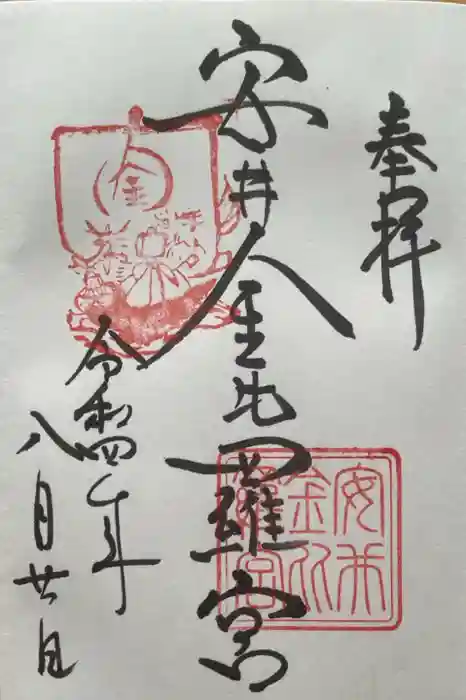 奉拝
安井金比羅宮
令和四年
八月廿日
安井
金比
羅宮
金